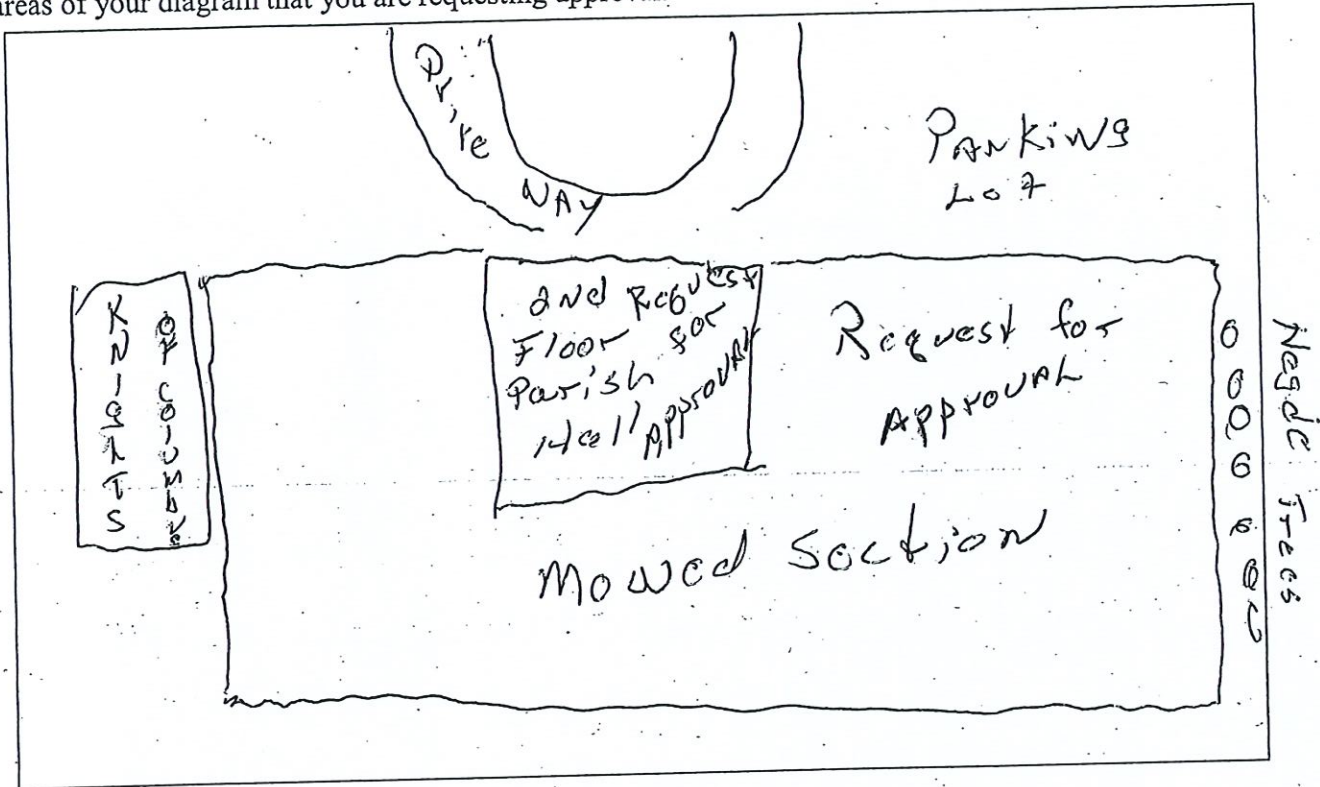 areas of your diagram that you are requesting approval
Drive
WAY
PARKiNg
Lot
KNIGHTS
OF COLUMBUS
2Nd Request
Floor for
Parish
Hall APPROVAL
Request for
APPROVAL
Mowed Section
Trees